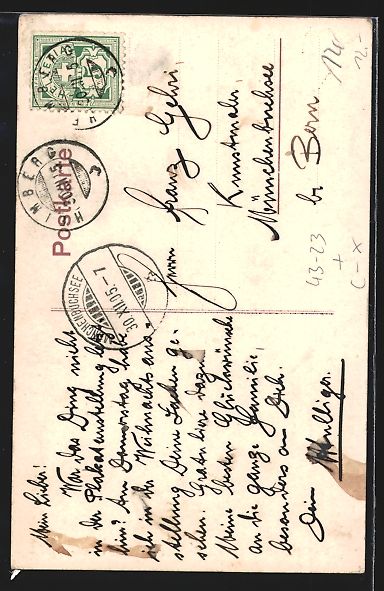 Postkarte
Herrn Franz Gehri
Kunstmaler
Münchenbuchsee
b/ Bern
Mein Lieber!
War das Ding nicht
in der Plakatausstellung letzt-
hin? Am Donnerstag habe
ich in der Weihnachtsaus-
stellung Deine Sachen ge-
sehen. Gratuliere dazu.
Meine besten Glückwünsche
an die ganze Familie,
besonders an Dich.
Dein
MÜNCHENBUCHSEE
30.XII.05.-7
HIMBERG
12.-
43-23
+
(-x